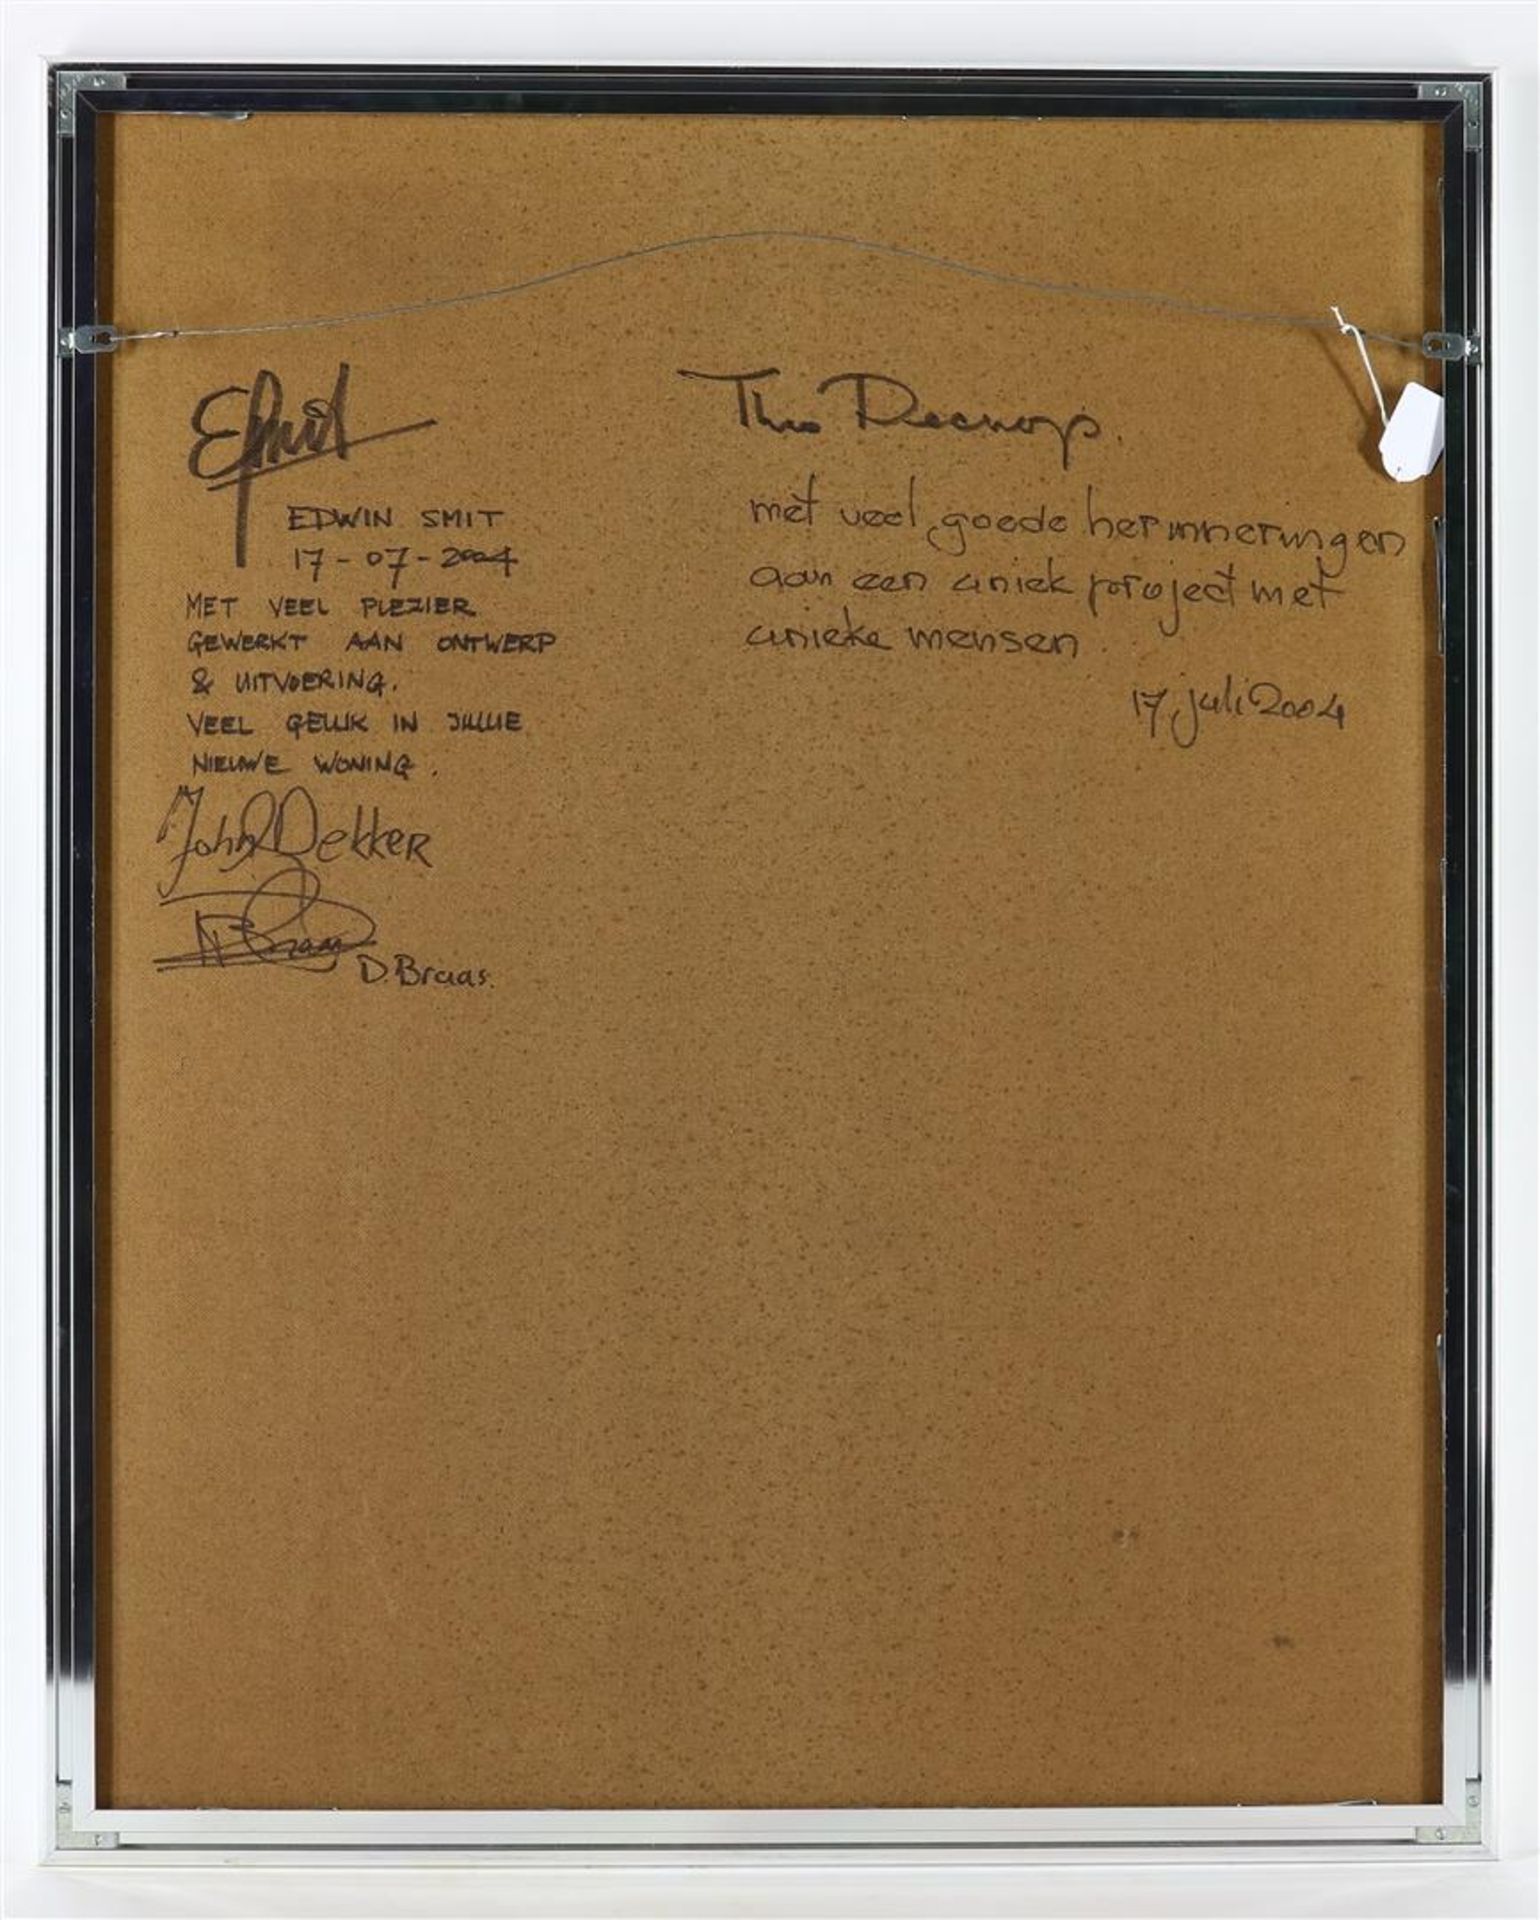 ESmit
EDWIN SMIT
17-07-2004
MET VEEL PLEZIER
GEWERKT AAN ONTWERP
& UITVOERING.
VEEL GELUK IN JULLIE
NIEUWE WONING.
John Dekker
D. Braas.
Theo
met veel goede herinneringen
aan een uniek project met
unieke mensen.
17 juli 2004